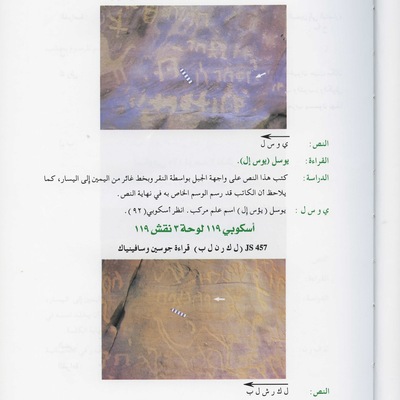 النص: ي و س ل
القراءة: يوسل (يوس إل).
الدراسة: كتب هذا النص على واجهة الجبل بواسطة النقر وبخط غائر من اليمين إلى اليسار، كما
يلاحظ أن الكاتب قد رسم الوسم الخاص به في نهاية النص.
ي و س ل : يوسل (يؤس إل) اسم علم مركب. انظر أسكوبي (٩٢).
أسكوبي ١١٩ لوحة ٣ نقش ١١٩
JS 457 (ل ك ر ن ل ب) قراءة جوسين وسافينياك
النص: ل ك ر ش ل ب